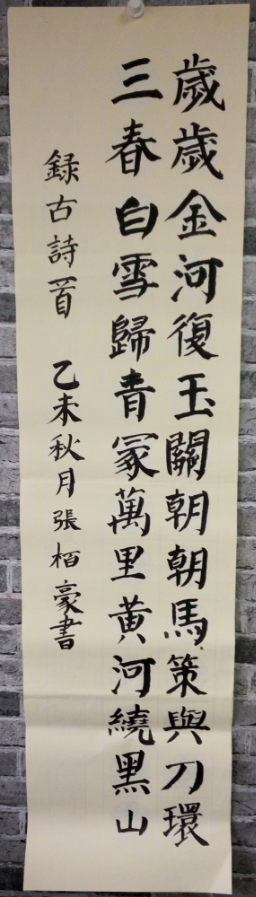 歲歲金河復玉關朝朝馬策與刀環
三春白雪歸青冢萬里黄河繞黑山
録古詩一首 乙未秋月張栢豪書